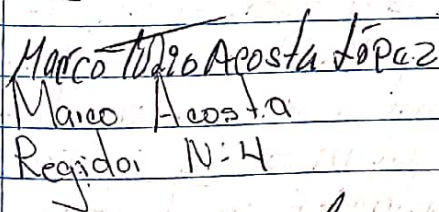 Marco Tulio Acosta López
Marco Acosta
Regidor N:4